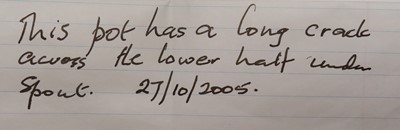 This pot has a long crack
across the lower half under
Spout. 27/10/2005.